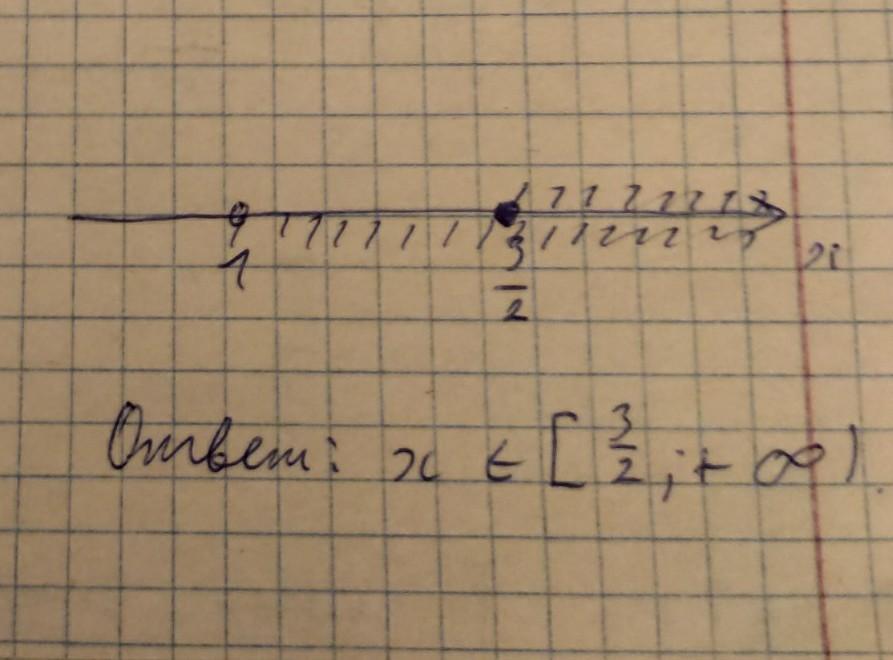 x
1
3/2
Ответ: x ∈ [3/2; +∞)